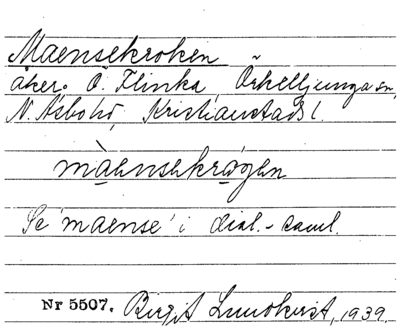 Maensekroken
åker. Ö. Flinka, Örkelljunga sn,
N. Åsbo hd, Kristianstads l.
màensəkrǫ̀gən
Se 'maense' i dial.-saml.
Nr 5507. Birgit Lundkvist, 1939.